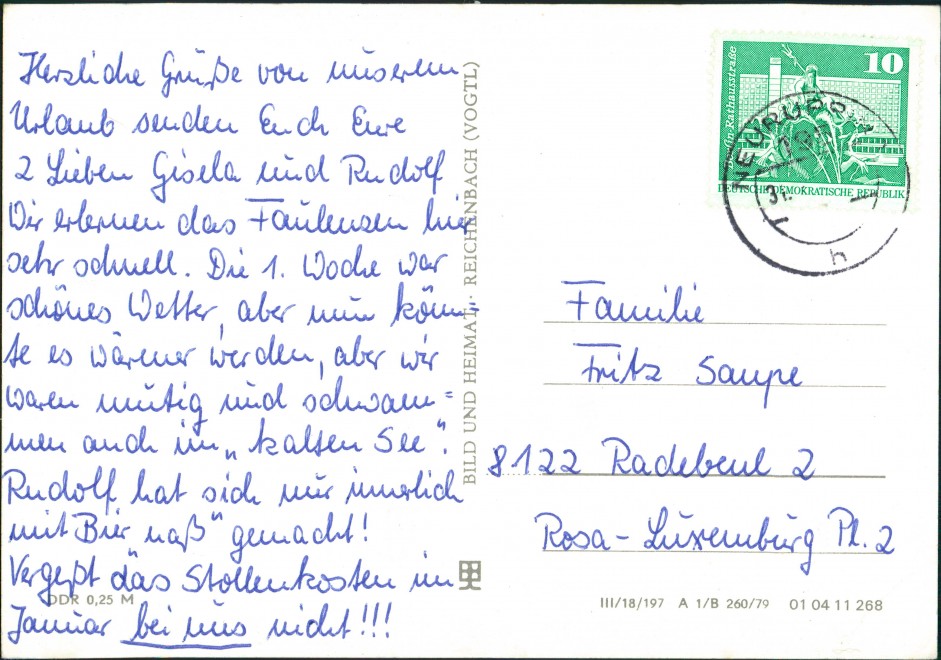 Herzliche Grüße von unserem
Urlaub senden Euch Eure
2 Lieben Gisela und Rudolf
Wir erlernen das Faulenzen hier
sehr schnell. Die 1. Woche war
schönes Wetter, aber nun könn=
te es wärmer werden, aber wir
waren mutig und schwam=
men auch im „kalten See".
Rudolf hat sich nur innerlich
mit Bier naß" gemacht!
Vergeßt das Stollenkosten im
Januar bei uns nicht!!!
DDR 0,25 M
BILD UND HEIMAT · REICHENBACH (VOGTL)
10
Berlin · Rathausstraße
DEUTSCHE DEMOKRATISCHE REPUBLIK
NEURUPPIN 1
31.
h
Familie
Fritz Saupe
8122 Radebeul 2
Rosa-Luxemburg Pl. 2
III/18/197 A 1/B 260/79 01 04 11 268